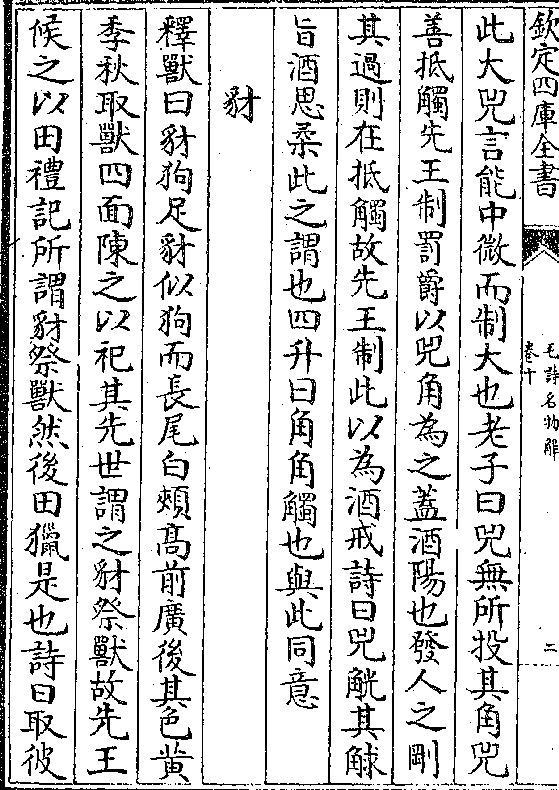 欽定四庫全書
毛詩名物解
卷十
二
此大兕言能中微而制大也老子曰兕無所投其角兕
善抵觸先王制罰爵以兕角為之蓋酒陽也發人之剛
其過則在抵觸故先王制此以為酒戒詩曰兕觥其觩
旨酒思柔此之謂也四升曰角角觸也與此同意
豺
釋獸曰豺狗足豺似狗而長尾白頰高前廣後其色黃
季秋取獸四面陳之以祀其先世謂之豺祭獸故先王
候之以田禮記所謂豺祭獸然後田獵是也詩曰取彼